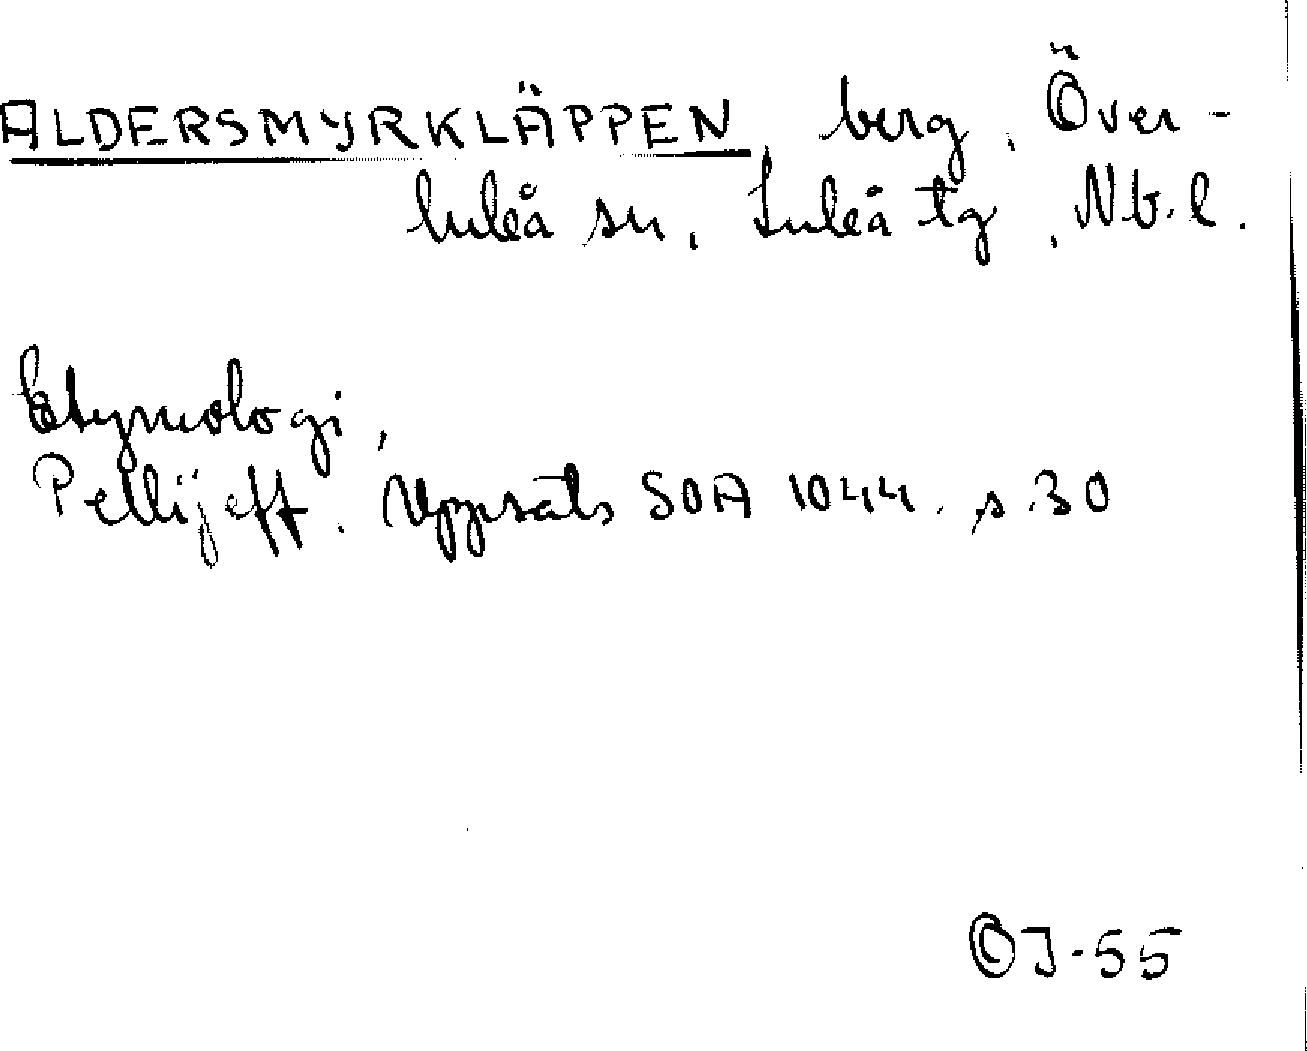 ALDERSMYRKLÄPPEN, berg, Över-
luleå sn, Luleå tg, Nb.l.
Etymologi,
Pellijeff. Uppsats SOA 1044. s.30
OJ-55